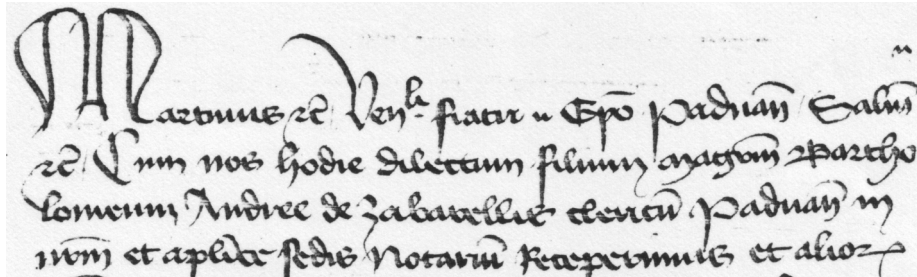 Martinus etc̄ Ven^li. fratri .. Ep̄o Paduan̄ Salut̄m
etc̄ Cum nos hodie dilectum filium magr̄m Bartho
lomeum Andree de Zabarellis clericū Paduan̄ in
nr̄m et aplice sedis Notariū Receperimus et alior